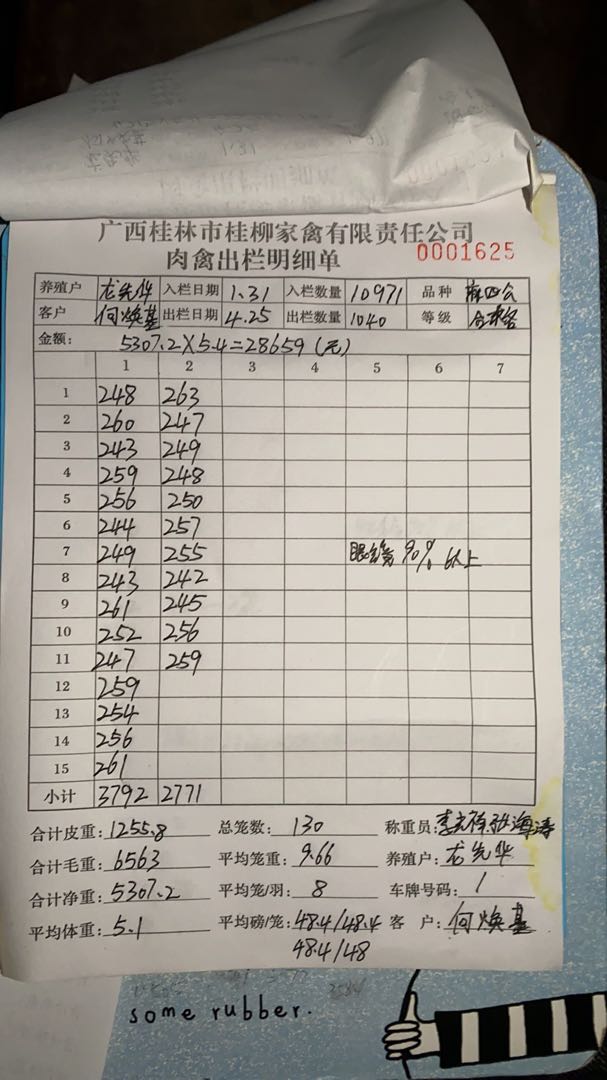 广西桂林市桂柳家禽有限责任公司
肉禽出栏明细单 0001625
养殖户 龙先华 入栏日期 1.31 入栏数量 10971 品种 麻四公
客户 何焕基 出栏日期 4.25 出栏数量 1040 等级 合格
金额: 5307.2×5.4=28659(元)
1 2 3 4 5 6 7
1 248 263
2 260 247
3 243 249
4 259 248
5 256 250
6 244 257
7 249 255 90% 以上
8 243 242
9 261 245
10 252 256
11 247 259
12 259
13 254
14 256
15 261
小计 3792 2771
合计皮重: 1255.8 总笼数: 130 称重员: 张海涛
合计毛重: 6563 平均笼重: 9.66 养殖户: 龙先华
合计净重: 5307.2 平均笼/羽: 8 车牌号码: 1
平均体重: 5.1 平均磅/笼: 48.4/48.4 客 户: 何焕基
48.4/48
some rubber.